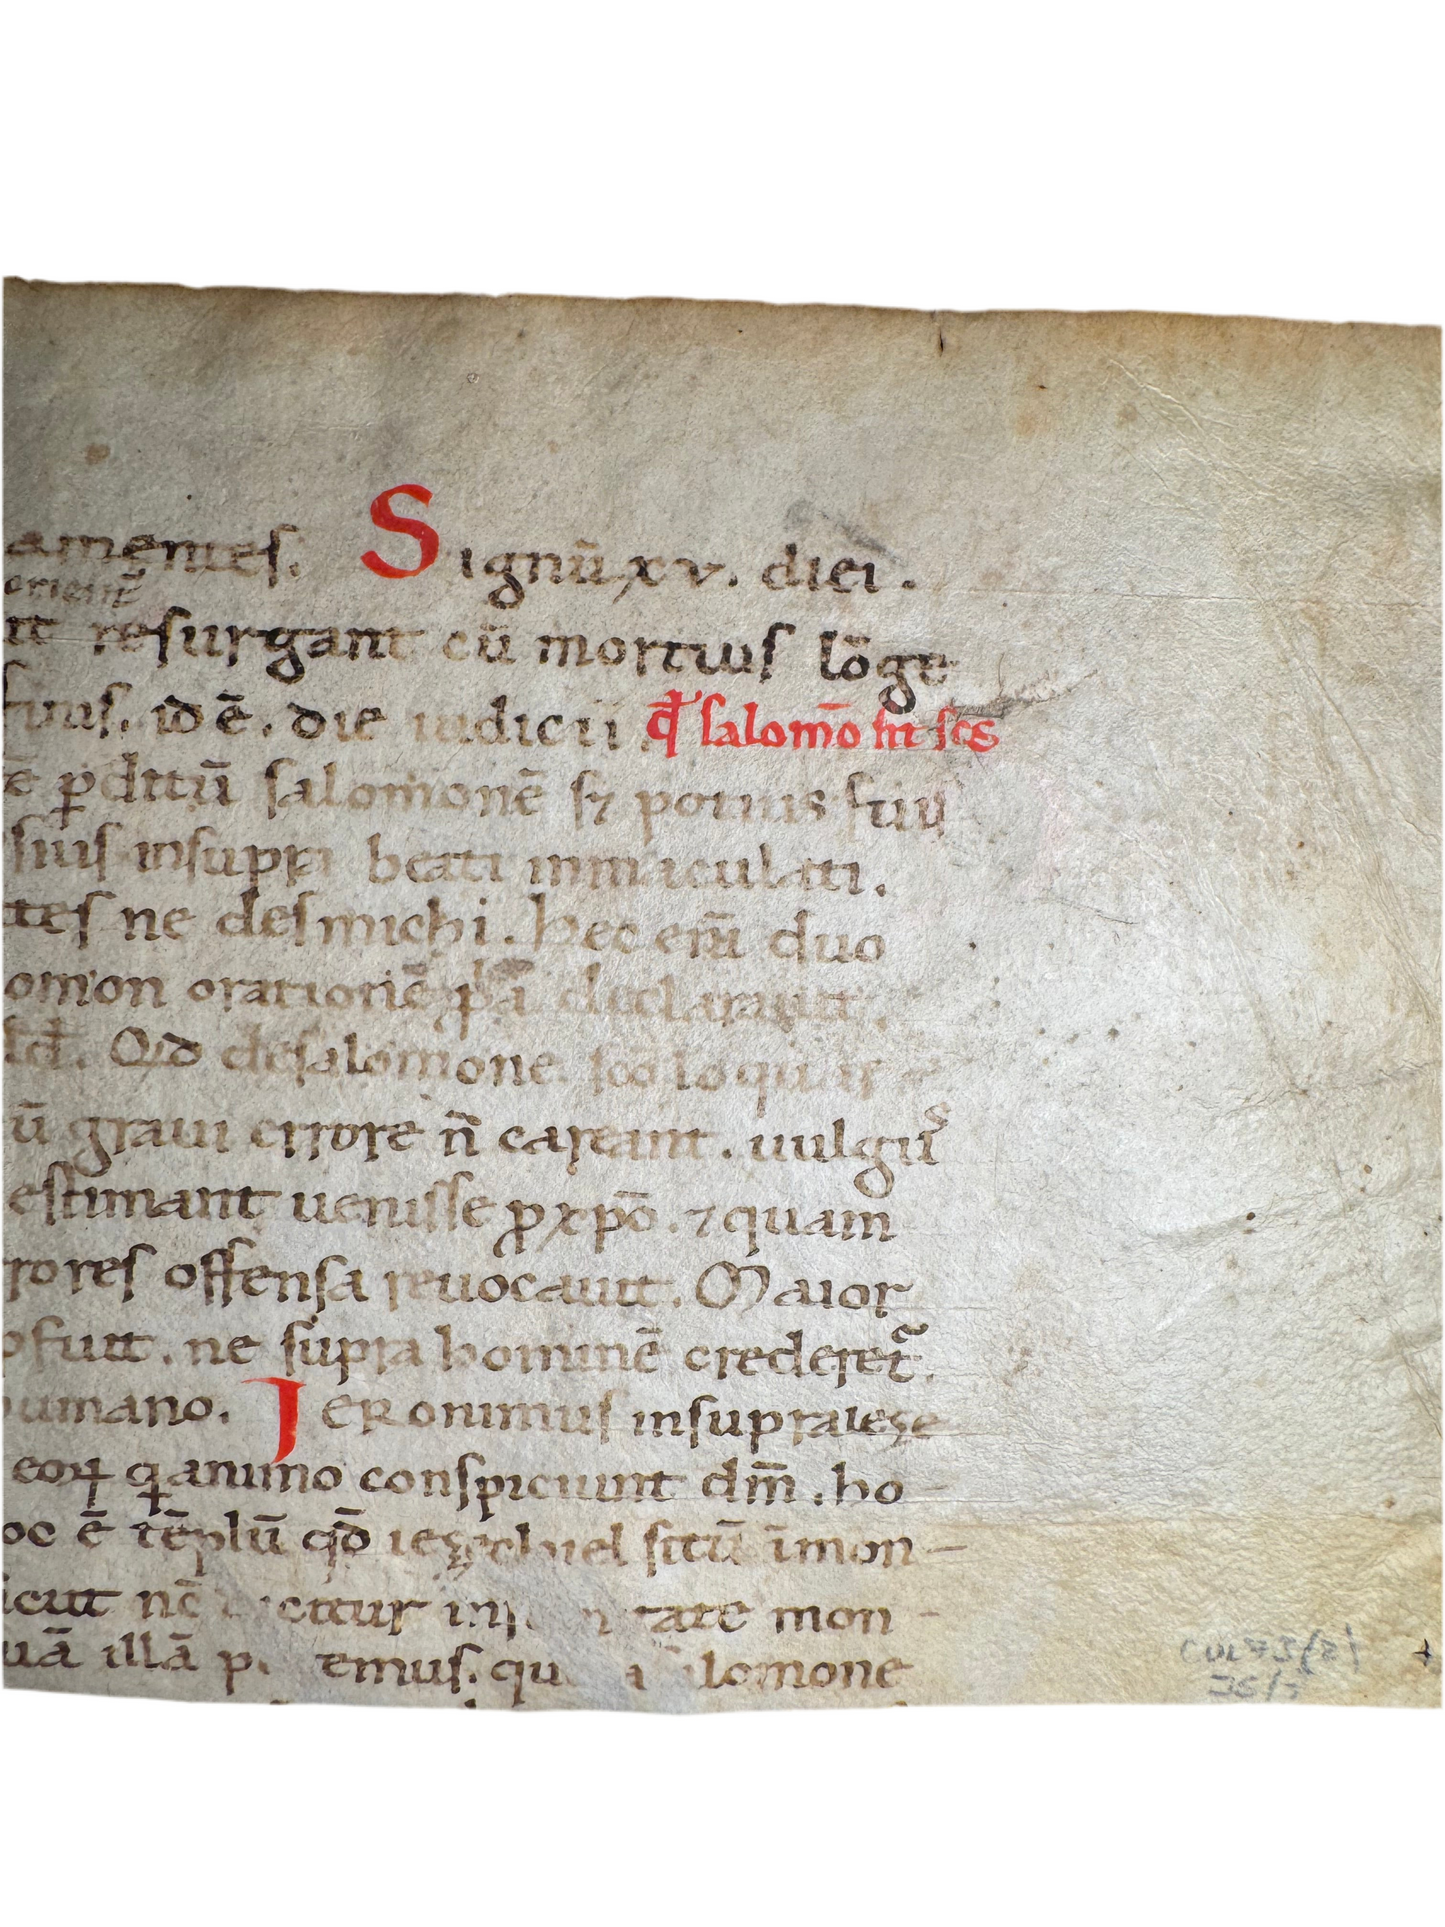 amentes. Signū xv. diei.
orient̄
nt resurgant cū mortuis lōge
tuus. id ē. die iudicii qđ salomō sit scs
ē pditū salomonē sꝫ potius fuis
sius insupri beati inmaculati.
tes ne des michi. hec eni duo
omon orationē declarauit.
Qđ de salomone loquar
ū graui errore n̄ careant. uulgu᷒
estimant uenisse p xpō. ⁊ quam
rores offensa reuocauit. Maior
ofuit. ne supra hominē crederet᷑.
humano. Jeronimus insupra ieze
eoꝝ q animo conspiciunt dm̄. ho-
oc ē tēplū qđ iezechiel sitū ī mon-
icut nc̄ mon-
uā illā emus. alomone